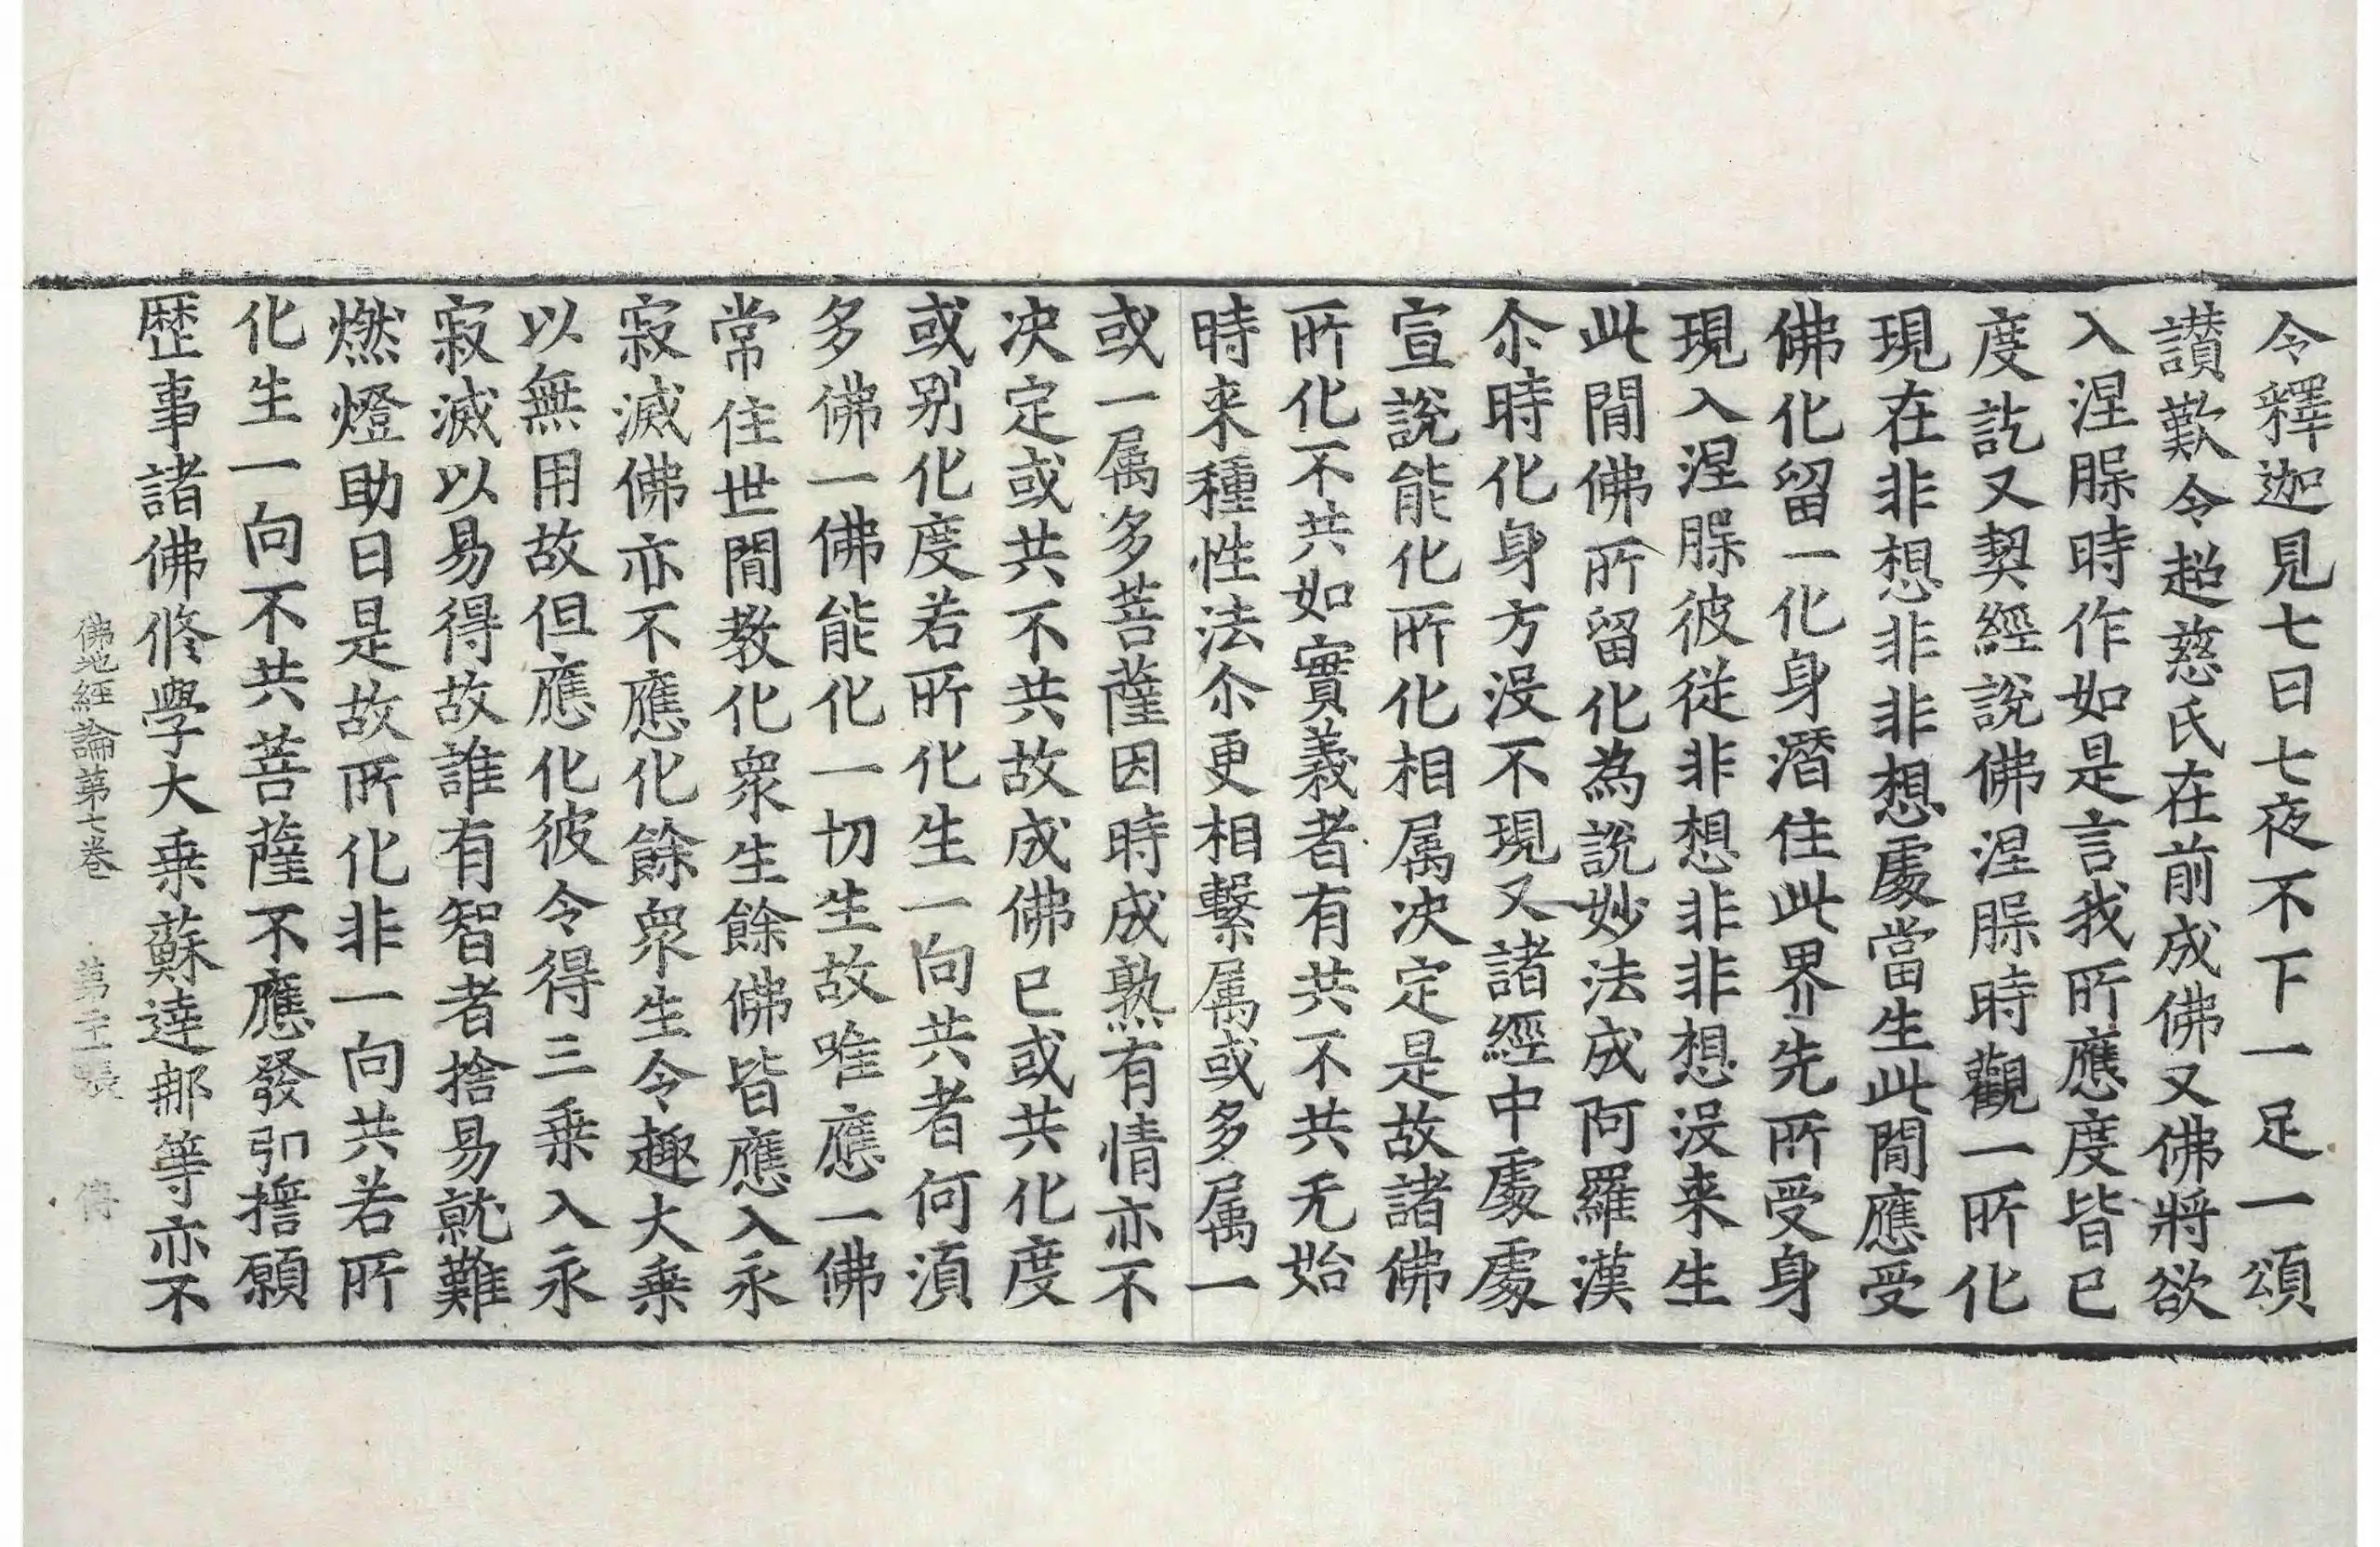 令釋迦見七日七夜不下一足一頌
讃歎令超慈氏在前成佛又佛將欲
入涅槃時作如是言我所應度皆已
度訖又契經說佛涅槃時觀一所化
現在非想非非想處當生此間應受
佛化留一化身潛住此界先所受身
現入涅槃彼從非想非非想沒来生
此間佛所留化為說妙法成阿羅漢
尒時化身方沒不現又諸經中處處
宣說能化所化相属决定是故諸佛
所化不共如實義者有共不共无始
時来種性法尒更相繫属或多属一
或一属多菩薩因時成熟有情亦不
决定或共不共故成佛已或共化度
或别化度若所化生一向共者何湏
多佛一佛能化一切生故唯應一佛
常住世間教化衆生餘佛皆應入永
寂滅佛亦不應化餘衆生令趣大乗
以無用故但應化彼令得三乗入永
寂滅以易得故誰有智者捨易就難
燃燈助日是故所化非一向共若所
化生一向不共菩薩不應發弘誓願
歷事諸佛修學大乗蘇達那等亦不
佛地經論第七卷 第二十二張 傳